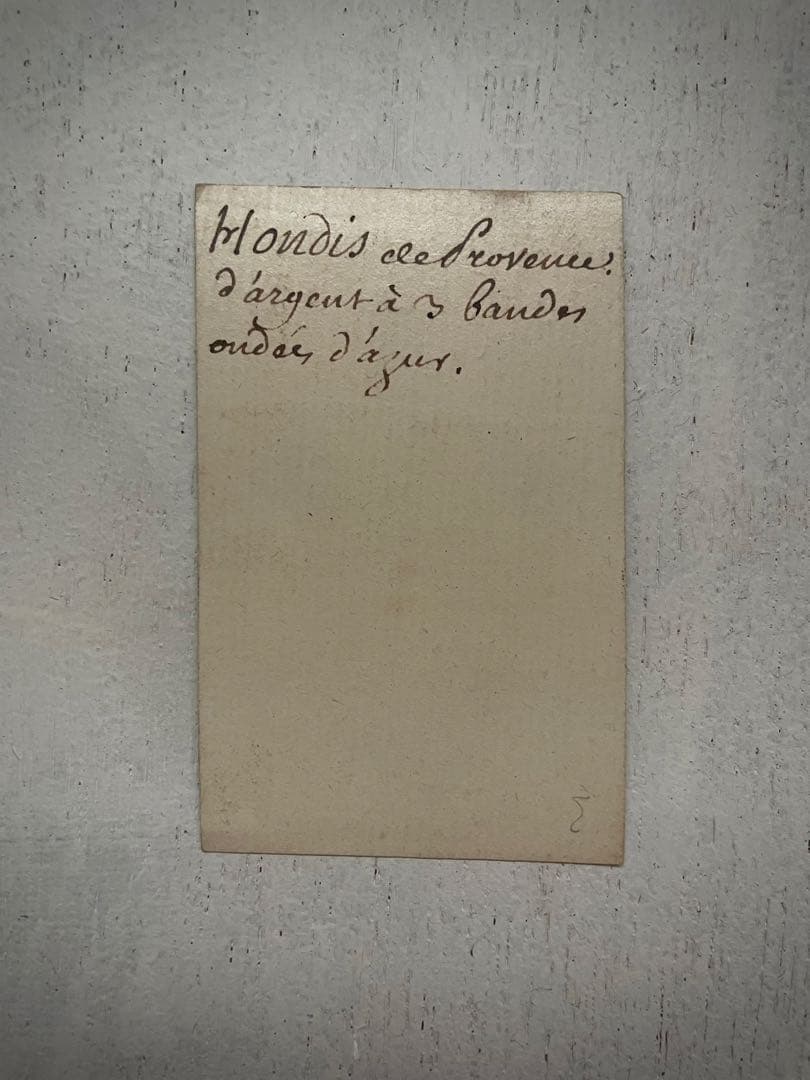 Hondis de Provence.
d'argent à 3 bandes
ondées d'azur.